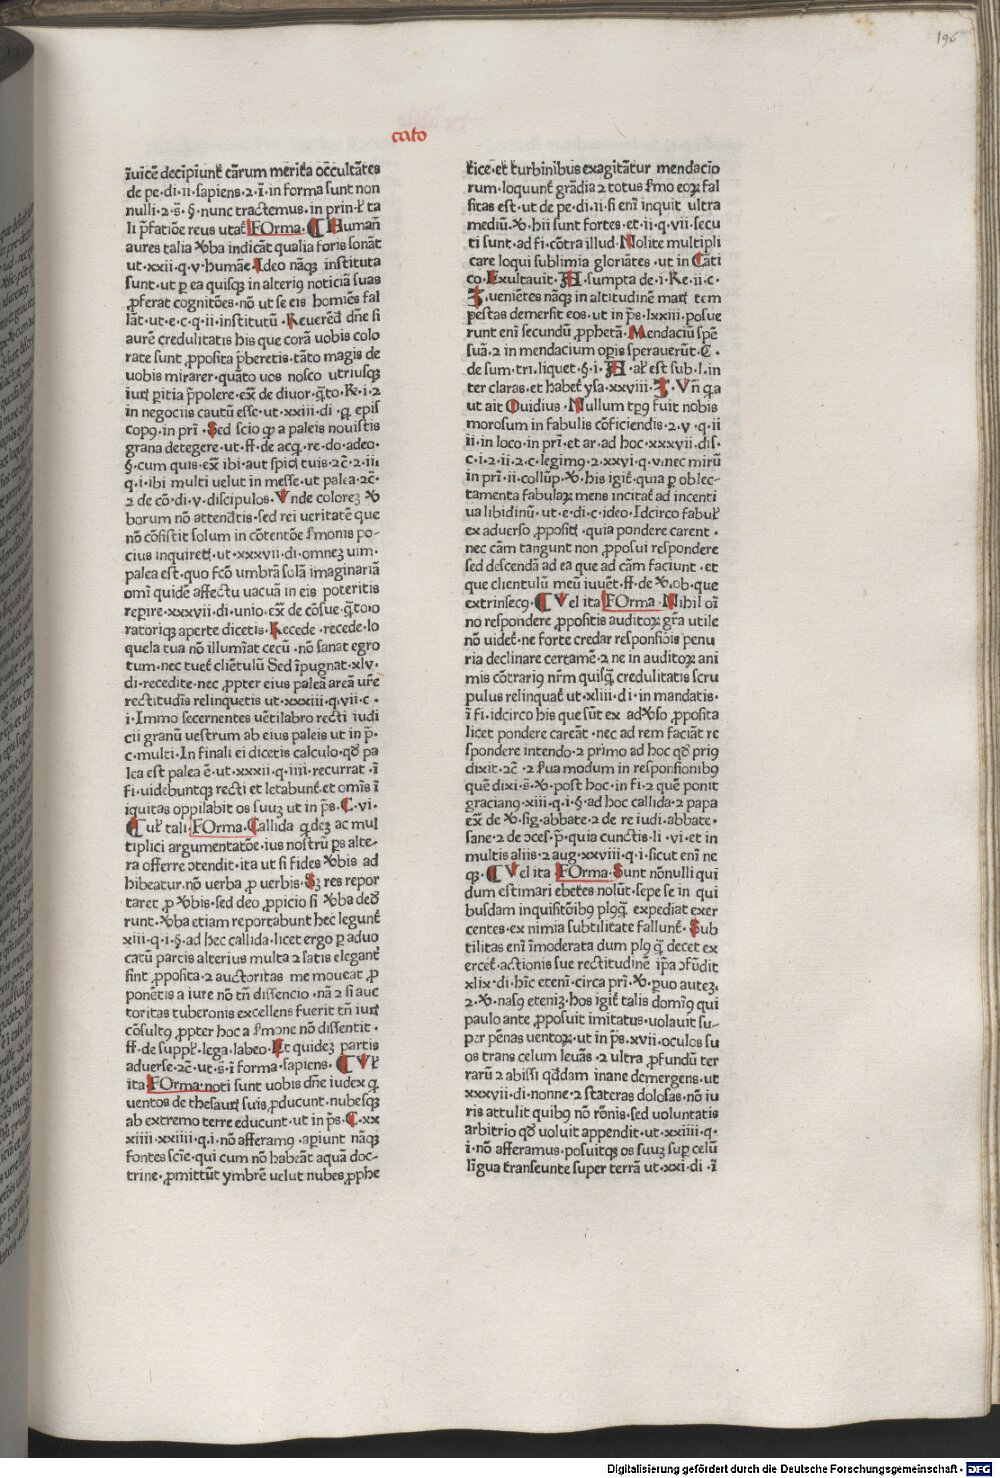 196
cato
ĩuicẽ decipiunt̃ cãrum merita occultãtes
de pe·di·ii·sapiens·2·ĩ·in forma sunt non
nulli·2·s̃·§·nunc tractemus·in prin·ł ta
li p̃fatiõe reus utat̃ FOrma·¶ Humañ
aures talia ꝟba indicãt qualia foris sonãt
ut·xxii·q·v·humãe·Ideo nãqꝫ instituta
sunt·ut ꝑ ea quisqꝫ in alteriꝰ noticiã suas
ꝓferat cognitões·nõ ut se eis homiẽs fal
lãt·ut·e·c·q·ii·institutũ·Reuerẽd dñe si
aurẽ credulitatis his que corã uobis colo
rate sunt ꝓposita p̃beretis·tãto magis de
uobis mirarer·quãto uos nosco utriusqꝫ
iuꝝ pitia p̃polere·ex̃ de diuor·q̃to·R·i·2
in negociis cautũ esse·ut·xxiii·di·q epis
copꝰ·in pri·Sed scio qꝫ a paleis nouistis
grana detegere·ut·ff·de acq·re·do·adeo·
§·cum quis·ex̃ ibi·aut spici tuis·2c̃·2·iii
q·i·ibi multi uelut in messe·ut palea·2c̃·
2 de cõ·di·v·discipulos·Vnde colorez ꝟ
borum nõ attendtis·sed rei ueritatẽ que
nõ cõsistit solum in cõtentõe sermonis po-
cius inquiret̃·ut·xxxvii·di·omnez uim·
palea est·quo fcõ umbrã solã imaginariã
omi quidẽ affectu uacuã in eis poteritis
reꝑire·xxxvii·di·unio·ex̃ de cõsue·q̃to·o
ratoriqꝫ aperte dicetis·Recede·recede·lo
quela tua nõ illumiat cecũ·nõ sanat egro
tum·nec tuet̃ cliẽtulũ Sed ĩpugnat·xlv·
di·recedite·nec ꝓpter eius paleã areã uĩe
rectitudĩs relinquetis ut·xxxiii·q·vii·c·
i·Immo secernentes uẽtilabro recti iudi
cii granũ uestrum ab eius paleis ut in p̃·
c·multi·In finali ei dicetis calculo·qđ pa
lea est palea ẽ·ut·xxxii·q·iiii·recurrat·ĩ
fi·uidebuntqꝫ recti et letabunt̃·et omĩs ĩ
iquitas oppilabit os suuꝫ ut in p̃s·C·vi·
¶Vł tali·FOrma·Callida qdeꝫ ac mul
tiplici argumentatõe·ius nostrũ ps alte-
ra offerre ↄtendit·ita ut si fides ꝟbis ad
hibeatur·nõ uerba ꝓ uerbis·Sꝫ res repor
taret ꝓ ꝟbis·sed deo ꝓpicio si ꝟba deđ
runt·ꝟba etiam reportabunt hec legunt̃
xiii·q·i·§·ad hec callida·licet ergo ꝑ aduo
catũ partis alterius multa 2 satis elegant̃
sint ꝓposita·2 auctoritas me moueat ꝓ
ponẽtis a iure nõ tñ dissencio·nã 2 si auc
toritas tuberonis excellens fuerit tñ iuꝝ
cõsultꝫ ꝓpter hoc a s̃mone nõ dissentit·
ff·de suppł·lega·labeo·Et quideꝫ partis
aduerse·2c̃·ut·s̃·ĩ forma·sapiens·¶ Vł
ita FOrma·noti sunt uobis dñe iudex q
uentos de thesauꝝ suis ꝓducunt·nubesqꝫ
ab extremo terre educunt·ut in p̃s·C·xx
xiiii·xxiiii·q·i·nõ afferamꝰ·aꝑiunt nãqꝫ
fontes scĩe·qui cum nõ habeãt aquã doc-
trine·ꝓmittũt ymbrẽ uelut nubes ꝓphe
tice·et turbinibus exagitãtur mendacio
rum·loquunt̃ grãdia 2 totus s̃mo eoꝝ fal
sitas est·ut de pe·di·ii·si eni inquit ultra
mediũ·ꝟ·hii sunt fortes·et·ii·q·vii·secu
ti sunt·ad fi·cõtra illud·Nolite multipli
care loqui sublimia gloriãtes·ut in Cãti
co·Exultauit·IH·sumpta de·i·Re·ii·c·
I·ueniẽtes nãqꝫ in altitudinẽ maꝝ tem
pestas demersit eos·ut in p̃s·lxxiii·posue
runt eni secundũ ꝓphetã·Mendaciũ spẽ
suã·2 in mendacium oꝑis sperauerũt·C·
de sum·tri·liquet·§·i·IH·ał est sub·l·in
ter claras·et habet̃ ysa·xxviii·I·Vñ qa
ut ait Ouidius·Nullum tꝑꝰ fuit nobis
morosum in fabulis cõficiendis·2·v·q·ii
ii·in loco·in pri·et ar·ad hoc·xxxvii·dis·
c·i·2·ii·2·c·legimꝰ·2·xxvi·q·v·nec mirũ
in pri·ii·collup·ꝟ·his igit̃·quia ꝑ oblec-
tamenta fabulaꝝ mens incitat̃ ad incenti
ua libidinũ·ut·e·di·c·ideo·Idcirco fabuł
ex aduerso ꝓposiꝝ·quia pondere carent·
nec cãm tangunt non ꝓposui respondere
sed descendã ad ea que ad cãm faciunt·et
que clientulũ meũ iuuẽt·ff·de ꝟ·ob·que
extrinsecꝰ·¶ Vel ita FOrma·Nihil oĩ
no respondere ꝓpositis auditoꝝ gr̃a utile
nõ uidet̃·ne forte credar responsiõis penu
ria declinare certamẽ·2 ne in auditoꝝ ani
mis cõtrariꝰ nr̃m quisq̃ credulitatis scru
pulus relinquat̃ ut·xliii·di·in mandatis·
ĩ fi·idcirco his que sũt ex adꝟso ꝓposita
licet pondere careãt·nec ad rem faciãt re
spondere intendo·2 primo ad hoc qđ priꝰ
dixit·2c̃·2 s̃ua modum in responsionibꝰ
quẽ dixi·s̃·ꝟ·post hoc·in fi·2 quẽ ponit
gracianꝰ·xiii·q·i·§·ad hoc callida·2 papa
ex̃ de ꝟ·sig·abbate·2 de re iudi·abbate·
sane·2 de ↄces·p̃·quia cunctis·li·vi·et in
multis aliis·2 aug·xxviii·q·i·sicut eni ne
qꝫ·¶ Vel ita FOrma·Sunt nõnulli qui
dum estimari ebetes nolũt·sepe se in qui
busdam inquisitõibꝰ plꝰq̃ expediat exer
centes·ex nimia subtilitate fallunt̃·Sub
tilitas eni ĩmoderata dum plꝰ q̃ decet ex
ercet̃·actionis sue rectitudinẽ ip̃a ↄfũdit
xlix·di·hĩc eteni·circa pri·ꝟ·paruo auteꝫ·
2·ꝟ·nasꝰ eteniꝫ·hos igit̃ talis domĩꝰ qui
paulo ante ꝓposuit imitatus·uolauit su-
per pẽnas uentoꝝ·ut in p̃s·xvii·oculos su
os trans celum leuãs·2 ultra ꝓfundũ ter
rarũ 2 abissi qđdam inane demergens·ut
xxxvii·di·nonne·2 stateras dolosas·nõ iu
ris attulit quibꝰ nõ rõnis·sed uoluntatis
arbitrio qđ uoluit appendit·ut·xxiiii·q·
i·nõ afferamus·posuitqꝫ os suuꝫ suꝑ celũ
lĩgua transeunte super terrã ut·xxi·di·ĩ
Digitalisierung gefördert durch die Deutsche Forschungsgemeinschaft - DFG